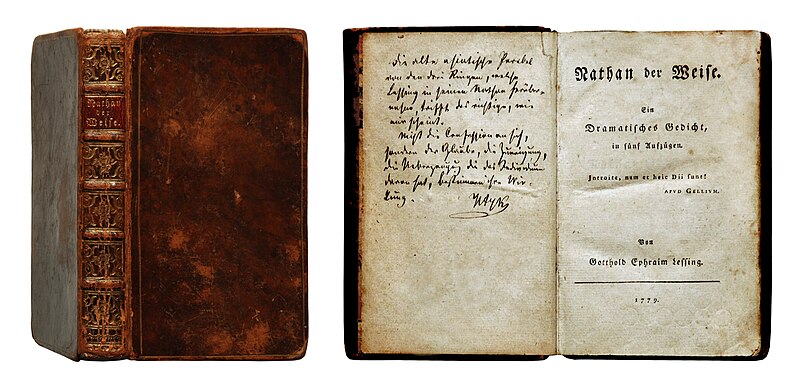 Nathan
der
Weise.
die alte asiatische Parabel
von den drei Ringen, welche
Lessing in seinen Nathan herüber-
nahm trifft das richtige, wie
mir scheint.
Nicht die Confession an sich,
sondern der Glaube, die Zuneigung,
die Ueberzeugung die das Individuum
daran hat, bestimmen ihre Wir-
kung.
Nathan der Weise.
Ein
Dramatisches Gedicht,
in fünf Aufzügen.
Introite, nam et heic Dii sunt!
APVD GELLIVM.
Von
Gotthold Ephraim Lessing.
1779.